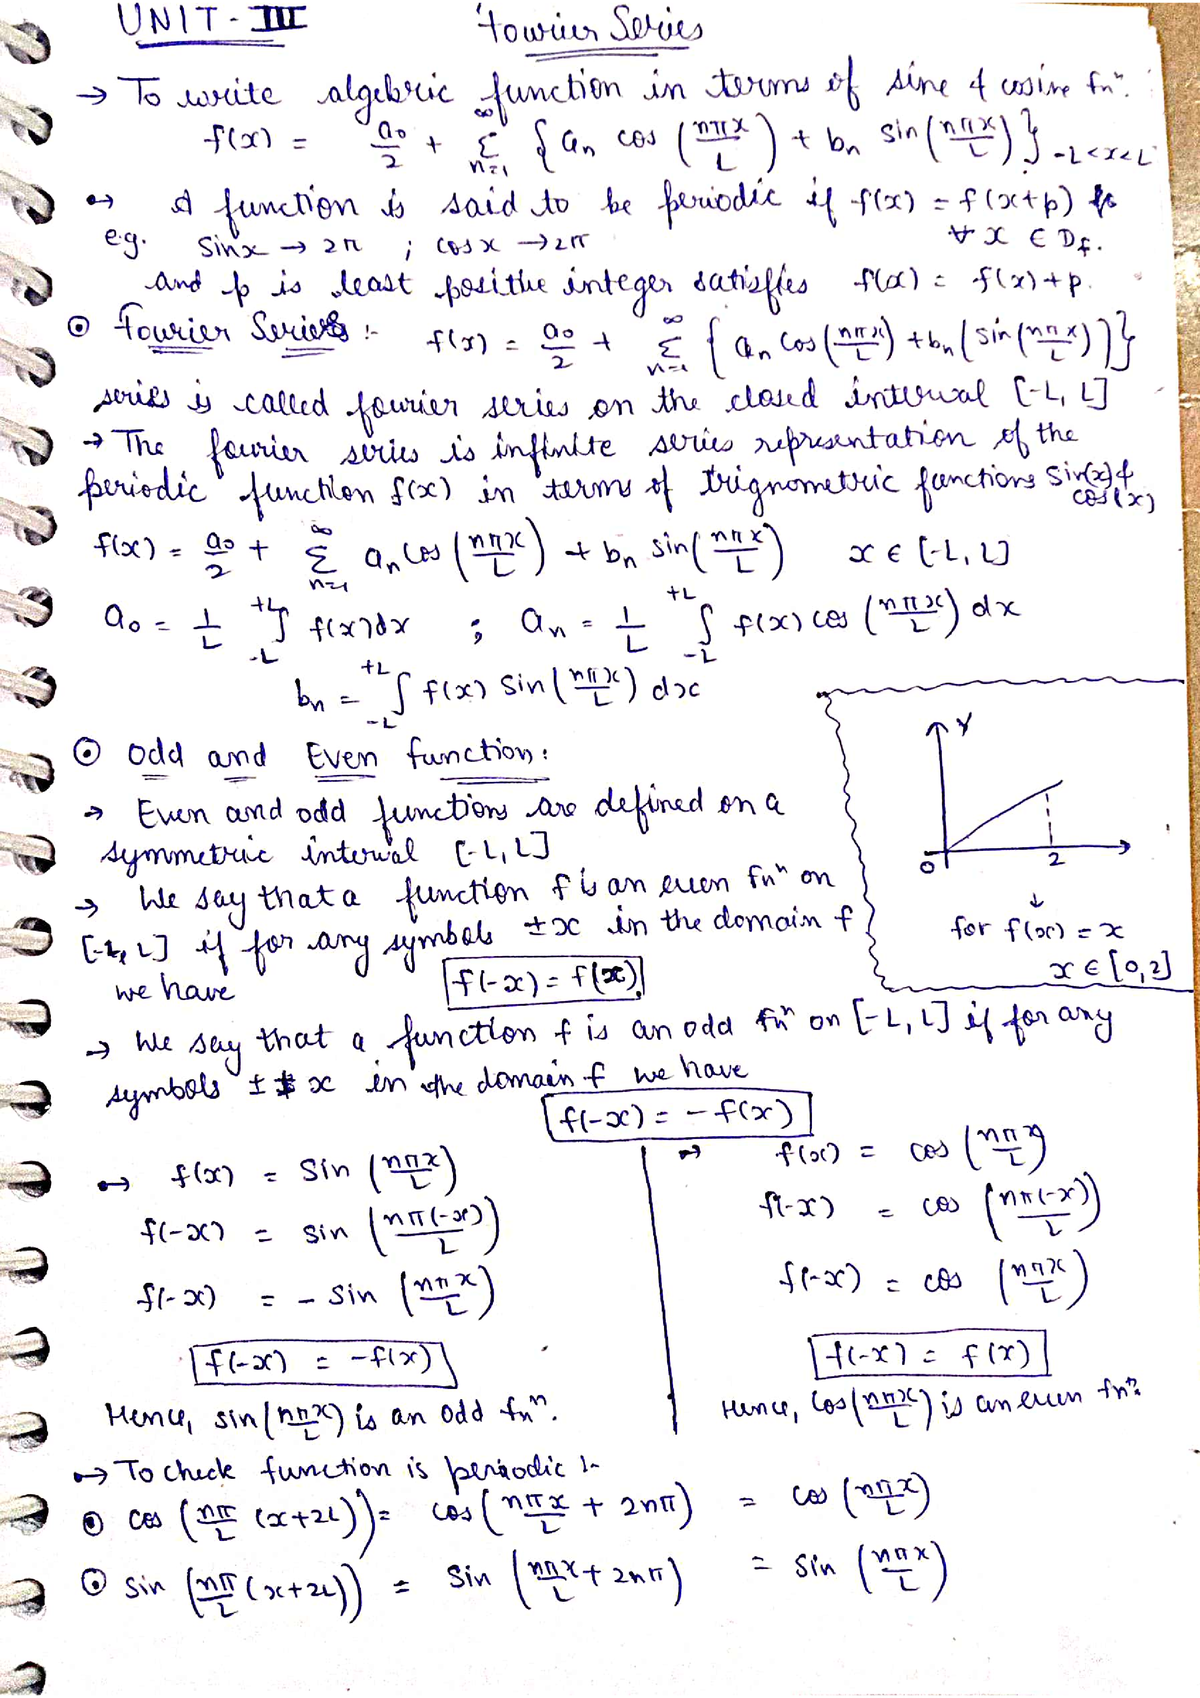 UNIT - III Fourier Series
→ To write algebric function in terms of sine & cosine fnⁿ.
f(x) = a₀/2 + ∞Σn=1 { aₙ cos (nπx/L) + bₙ sin (nπx/L) } -L<x<L
↦ A function is said to be periodic if f(x) = f(x+p)
e.g. Sinx → 2π ; cosx → 2π ∀ x ∈ Df.
and p is least positive integer satisfies f(x) = f(x)+p.
⊙ Fourier Series :- f(x) = a₀/2 + ∞Σn=1 { aₙ cos (nπx/L) + bₙ (sin (nπx/L)) }
series is called fourier series on the closed interval [-L, L]
→ The fourier series is infinite series representation of the
periodic function f(x) in terms of trignometric functions sin(x) &
cos(x)
f(x) = a₀/2 + ∞Σn=1 aₙ cos (nπx/L) + bₙ sin (nπx/L) x ∈ [-L, L]
a₀ = 1/L +L∫-L f(x)dx ; aₙ = 1/L +L∫-L f(x) cos (nπx/L) dx
bₙ = +L∫-L f(x) sin (nπx/L) dx
⊙ Odd and Even function:
→ Even and odd functions are defined on a
symmetric interval [-L, L]
→ We say that a function f is an even fnⁿ on
[-L, L] if for any symbols ±x in the domain f
we have f(-x) = f(x)
Y
0 2
↓
for f(x) = x
x ∈ [0,2]
→ We say that a function f is an odd fnⁿ on [-L, L] if for any
symbols ± x in the domain f we have
f(-x) = - f(x)
↦ f(x) = Sin (nπx/L)
f(-x) = sin (nπ(-x)/L)
f(-x) = - sin (nπx/L)
f(-x) = -f(x)
Hence, sin (nπx/L) is an odd fnⁿ.
↦ f(x) = cos (nπx/L)
f(-x) = cos (nπ(-x)/L)
f(-x) = cos (nπx/L)
f(-x) = f(x)
Hence, cos (nπx/L) is an even fnⁿ.
↦ To check function is periodic :-
⊙ cos (nπ/L (x+2L)) = cos (nπx/L + 2nπ) = cos (nπx/L)
⊙ sin (nπ/L (x+2L)) = sin (nπx/L + 2nπ) = sin (nπx/L)